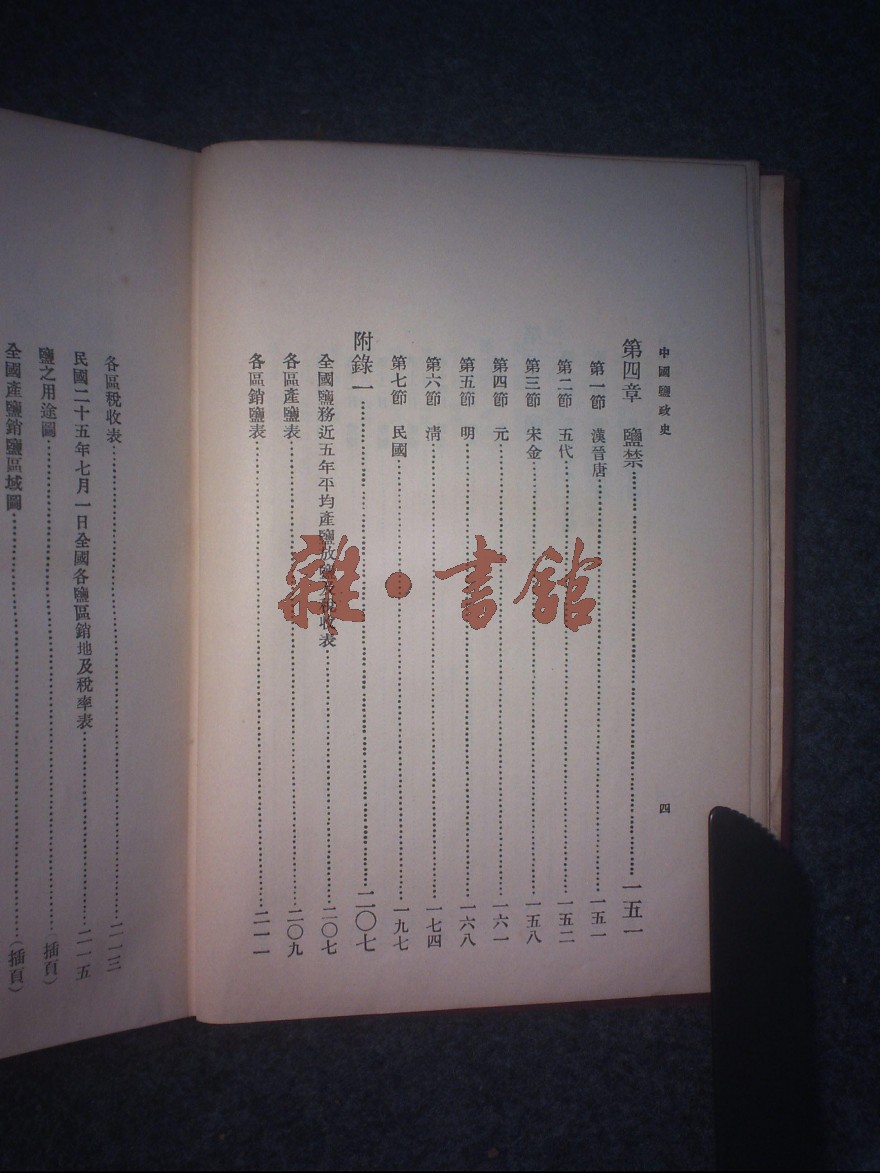 中國鹽政史
四
第四章 鹽禁……一五一
第一節 漢晉唐……一五一
第二節 五代……一五二
第三節 宋金……一五八
第四節 元……一六一
第五節 明……一六八
第六節 清……一七四
第七節 民國……一九七
附錄一……二〇七
全國鹽務近五年平均產鹽放鹽及稅收表……二〇七
各區產鹽表……二〇九
各區銷鹽表……二一一
各區稅收表……二一三
民國二十五年七月一日全國各鹽區銷地及稅率表……二一五
鹽之用途圖……(插頁)
全國產鹽銷鹽區域圖……(插頁)
雜·書館